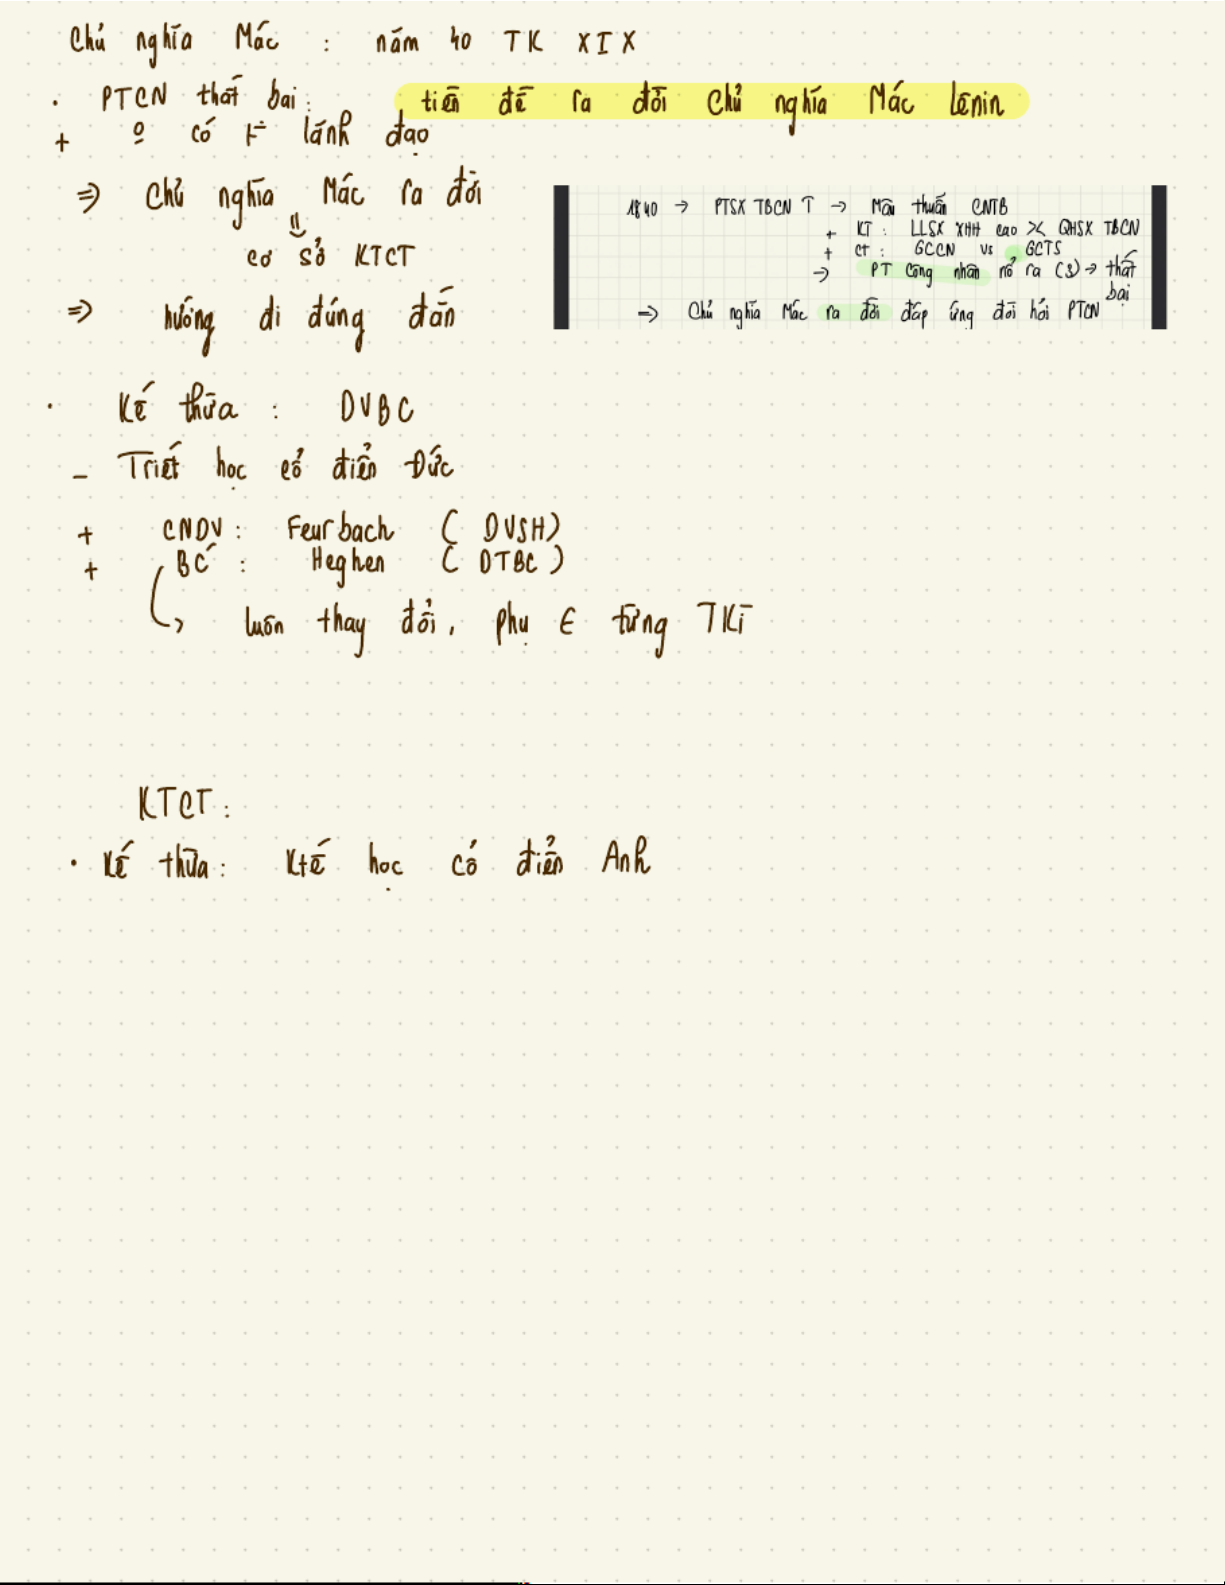 Chủ nghĩa Mác : năm 40 TK XIX
• PTCN thất bại : tiền đề ra đời Chủ nghĩa Mác Lênin
+ có lãnh đạo
⇒ Chủ nghĩa Mác ra đời
cơ sở KTCT
⇒ hướng đi đúng đắn
1840 → PTSX TBCN ↑ → Mâu thuẫn CNTB
+ KT : LLSX XHH cao >< QHSX TBCN
+ CT : GCCN vs GCTS
→ PT công nhân nổ ra (3) → thất bại
⇒ Chủ nghĩa Mác ra đời đáp ứng đòi hỏi PTCN
• Kế thừa : DVBC
- Triết học cổ điển Đức
+ CNDV : Feurbach ( DVSH)
+ BC : Heghen ( DTBC )
↳ luôn thay đổi, phụ ∈ từng TKì
KTCT :
• Kế thừa : Ktế học cổ điển Anh